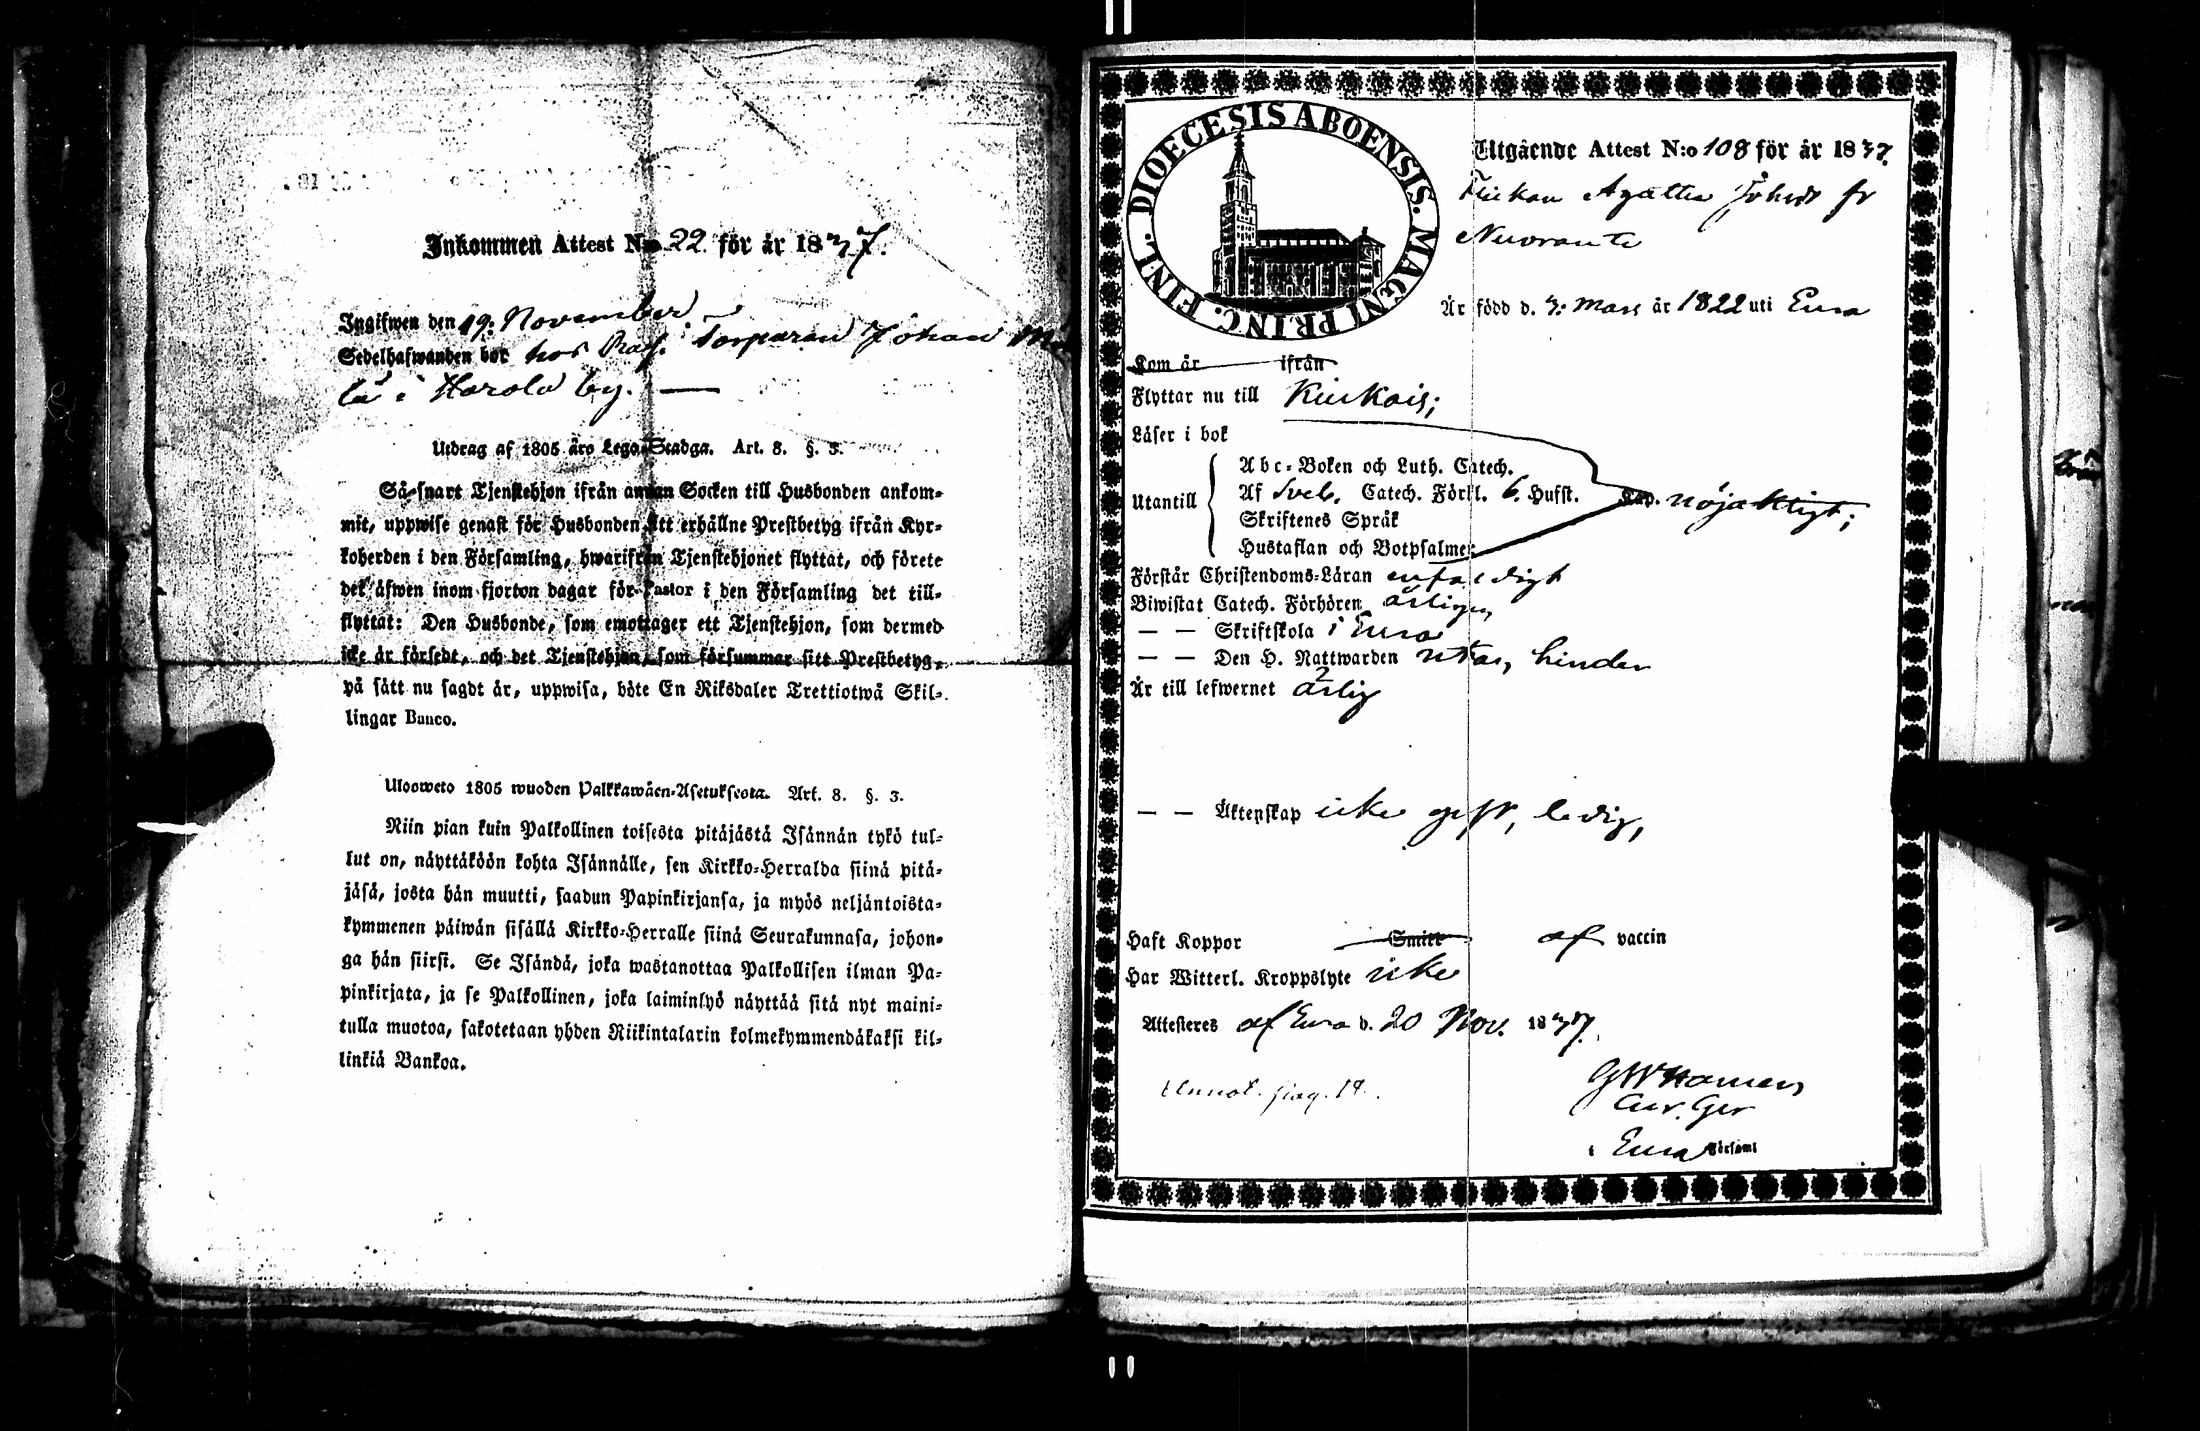 Inkommen Attest N:o 22. för år 1837.
Ingifwen den 19. November
Sedelhafwanden bor hos torparen Johan
i Harola by.
Utdrag af 1805 års Lego-Stadga. Art. 8. §. 3.
Så-snart Tjenstehjon ifrån annan Socken till Husbonden ankom-
mit, uppwise genast för Husbonden sitt erhållne Prestbetyg ifrån Kyr-
koherden i den Församling, hwarifrån Tjenstehjonet flyttat, och förete
det äfwen inom fjorton dagar för Pastor i den Församling det till-
flyttat: Den Husbonde, som emottager ett Tjenstehjon, som dermed
icke är försedt, och det Tjenstehjon, som försummar sitt Prestbetyg
på sätt nu sagdt är, uppwisa, böte En Riksdaler Trettiotwå Skil-
lingar Banco.
Ulosweto 1805 wuoden Palkkawäen-Asetuksesta. Art. 8. §. 3.
Niin pian kuin Palkollinen toisesta pitäjästä Isännän tykö tul-
lut on, näyttäköön kohta Isännälle, sen Kirkko-Herralda siinä pitä-
jäsä, josta hän muutti, saadun Papinkirjansa, ja myös neljäntoista-
kymmenen päiwän sisällä Kirkko-Herralle siinä Seurakunnasa, johon-
ga hän siirsi. Se Isändä, joka wastanottaa Palkollisen ilman Pa-
pinkirjata, ja se Palkollinen, joka laiminlyö näyttää sitä nyt maini-
tulla muotoa, sakotetaan yhden Riikintalarin kolmekymmendäkaksi kil-
linkiä Bankoa.
DIOECESIS ABOENSIS. MAGNI PRINC. FINL.
Utgående Attest N:o 108 för år 1837.
Flickan Agatha Johsdr fr
Är född d. 7. Mars år 1822 uti Eura
Kom år ifrån
Flyttar nu till Kiukais;
Läser i bok
Utantill
Abc-Boken och Luth. Catech.
Af Sveb. Catech. Förkl. 6. Hufst. nöjaktigt;
Skriftenes Språk
Hustaflan och Botpsalmer
Förstår Christendoms-Läran enfaldigt
Biwistat Catech. Förhören årligen
— — Skriftskola i Eura
— — Den H. Nattwarden utan hinder
Är till lefwernet ärlig
— — Äktenskap icke gift, ledig,
Haft Koppor Smitt af vaccin
Har Witterl. Kroppslyte icke
Attesteres af Eura d. 20 Nov. 1837.
Annot. pag. 18.
i Eura Församl